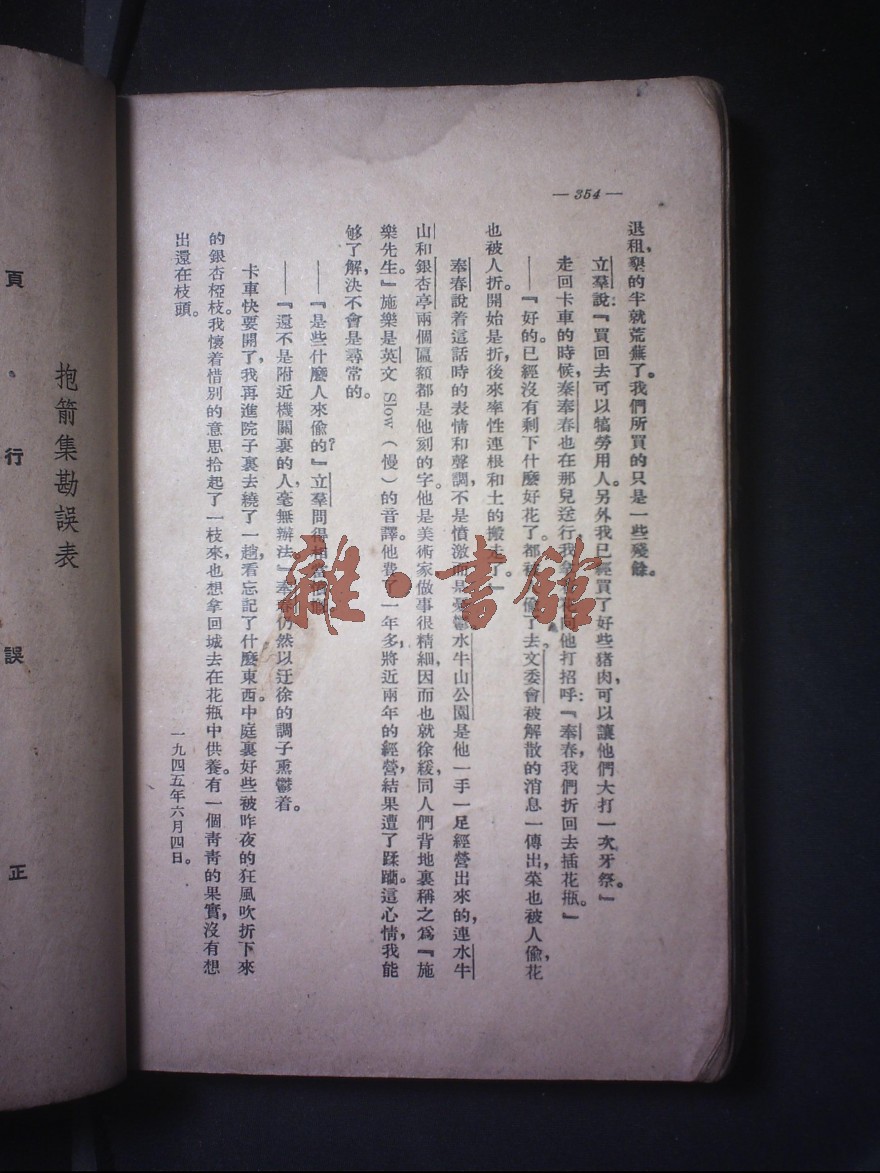 — 354 —
退租，墾的半就荒蕪了。我們所買的只是一些殘餘。
立羣說：『買回去可以犒勞用人。另外我已經買了好些猪肉，可以讓他們大打一次牙祭。』
走回卡車的時候，秦奉春也在那兒送行，我拿花向他打招呼：『奉春，我們折回去插花瓶。』
——『好的。已經沒有剩下什麼好花了。都被人偷了去。文委會被解散的消息一傳出，菜也被人偷，花
也被人折。開始是折，後來率性連根和土的搬走了。』
奉春說着這話時的表情和聲調，不是憤激而是憂鬱。水牛山公園是他一手一足經營出來的，連水牛
山和銀杏亭兩個匾額都是他刻的字。他是美術家做事很精細，因而也就徐緩，同人們背地裏稱之爲『施
樂先生。』施樂是英文 Slow（慢）的音譯。他費了一年多，將近兩年的經營，結果遭了蹂躪。這心情，我能
够了解，決不會是尋常的。
——『是些什麼人來偷的？』立羣問得相當
——『還不是附近機關裏的人，毫無辦法。』奉春仍然以迂徐的調子熏鬱着。
卡車快要開了，我再進院子裏去繞了一趟，看忘記了什麼東西。中庭裏好些被昨夜的狂風吹折下來
的銀杏椏枝。我懷着惜別的意思拾起了一枝來，也想拿回城去在花瓶中供養。有一個青青的果實，沒有想
出還在枝頭。
一九四五年六月四日。
抱箭集勘誤表
頁 行 誤 正
雜·書館